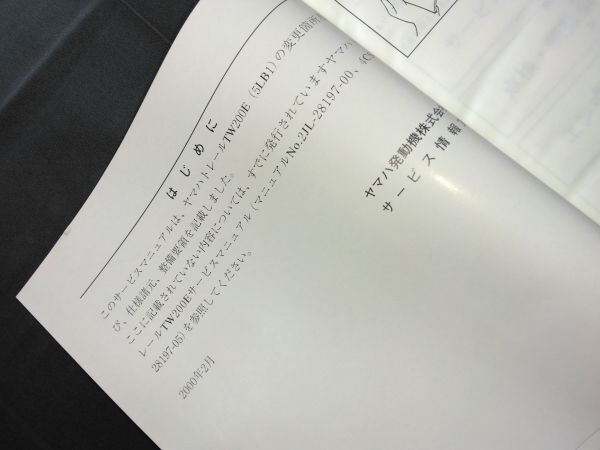 はじめに
このサービスマニュアルは、ヤマハトレールTW200E (5LB1) の変更箇所
び、仕様諸元、整備要領を記載しました。
ここに記載されていない内容については、すでに発行されていますヤマハ
レールTW200Eサービスマニュアル (マニュアルNo.2JL-28197-00、4C
28197-05) を参照してください。
2000年2月
ヤマハ発動機株式会
サービス情報